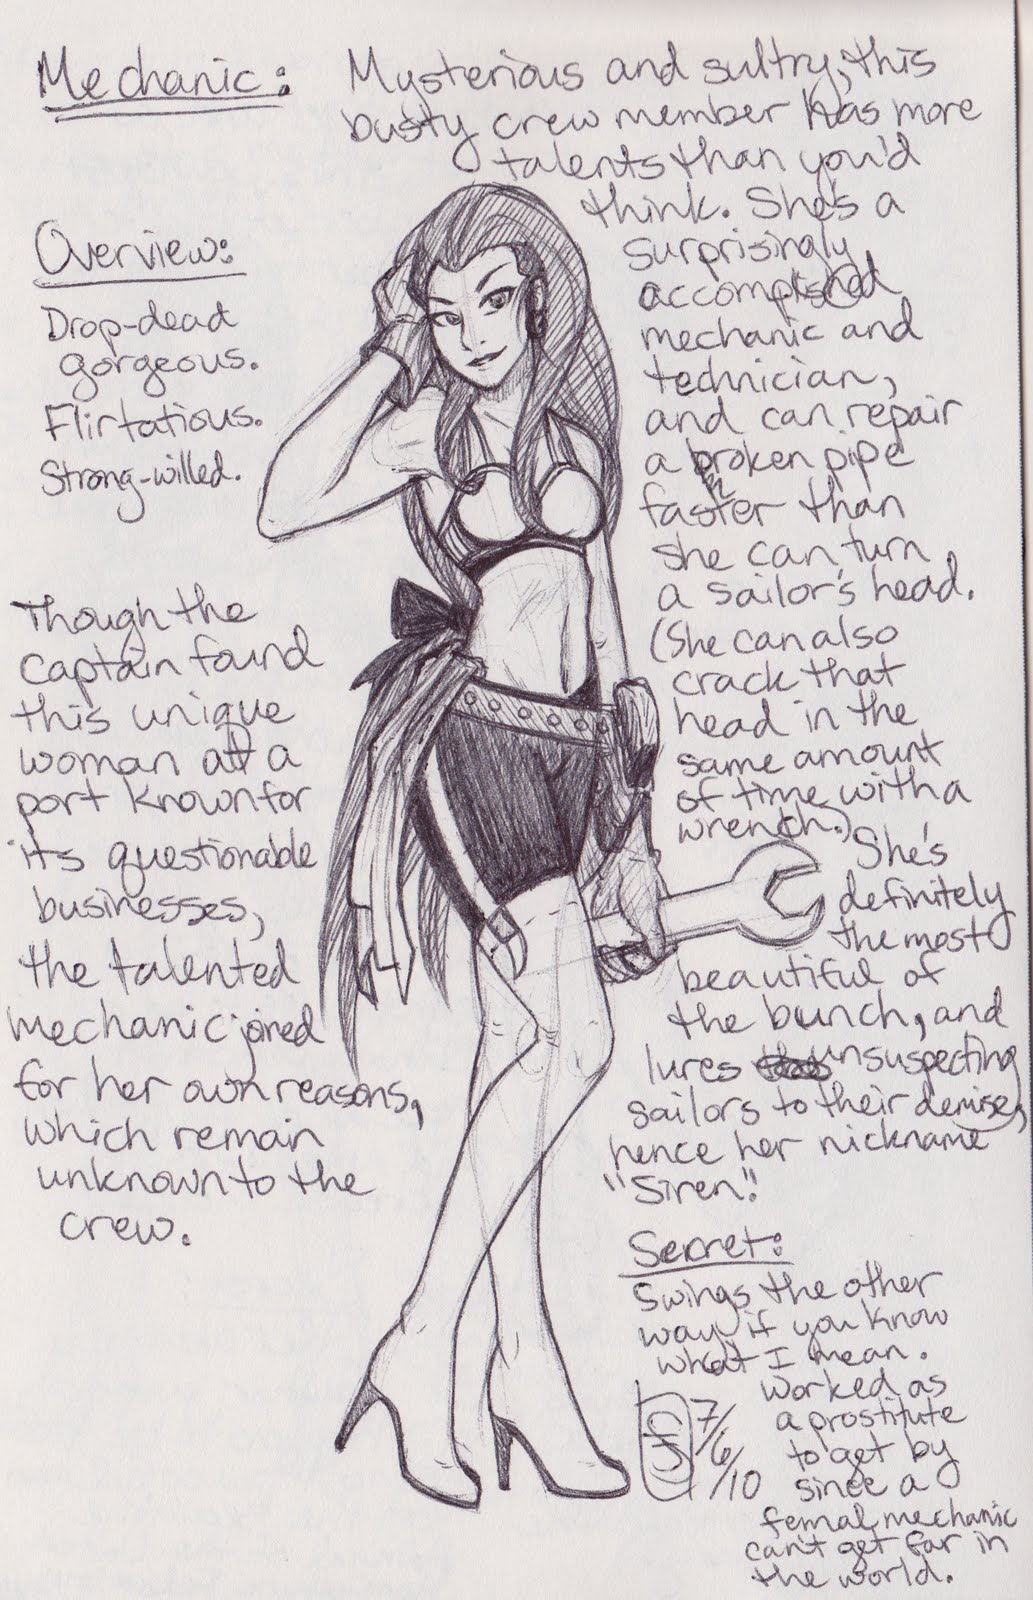 Mechanic:
Mysterious and sultry, this
busty crew member has more
talents than you'd
think. She's a
surprisingly
accomplished
mechanic and
technician,
and can repair
a broken pipe
faster than
she can turn
a sailor's head.
(She can also
crack that
head in the
same amount
of time with a
wrench.)
She's
definitely
the most
beautiful of
the bunch, and
lures unsuspecting
sailors to their demise,
hence her nickname
"Siren."
Overview:
Drop-dead
gorgeous.
Flirtatious.
Strong-willed.
Though the
captain found
this unique
woman at a
port known for
its questionable
businesses,
the talented
mechanic joined
for her own reasons,
which remain
unknown to the
crew.
Secret:
Swings the other
way if you know
what I mean.
Worked as
a prostitute
to get by
since a
female mechanic
can't get far in
the world.
7/6/10